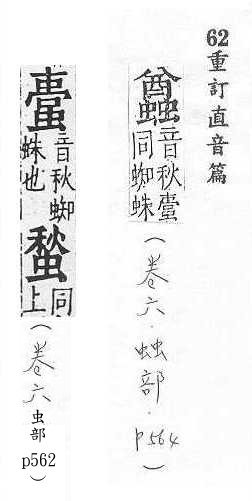 62重訂直音篇
音秋
同蜘蛛
(卷六．䖵部．p564)
音秋蜘
蛛也
同上
(卷六虫部p562)